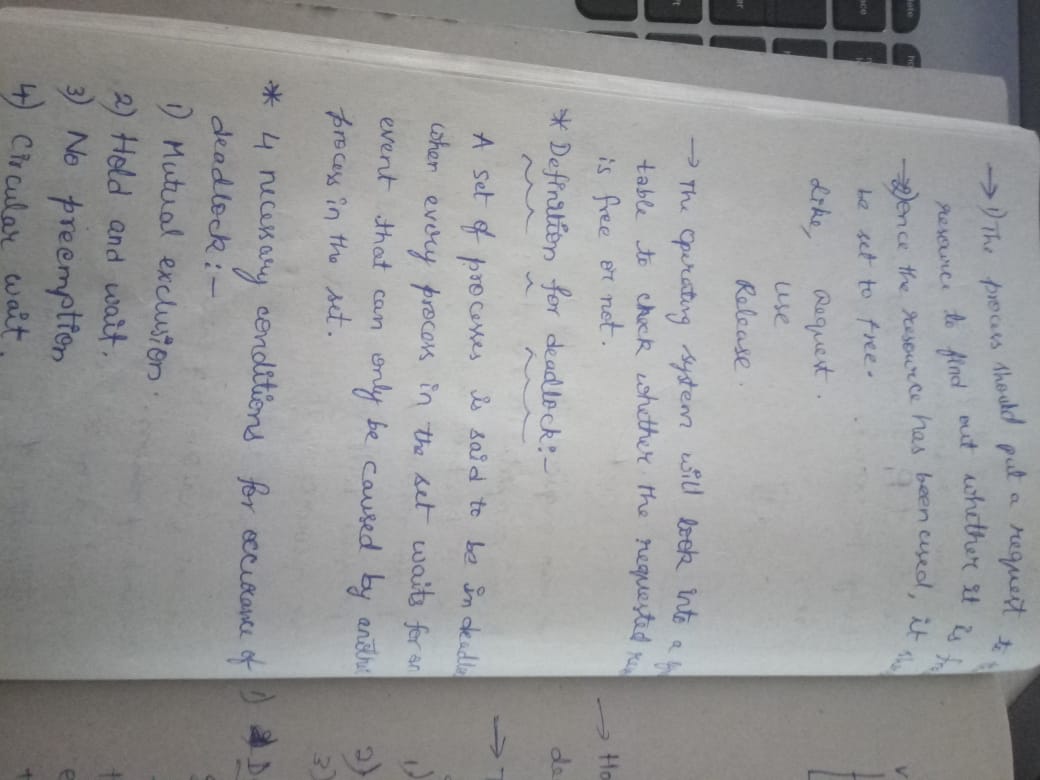 → 1) The process should put a request to
resource to find out whether it is
→ 2) once the resource has been used, it
be set to free.
Like, Request.
Use
Release.
→ The operating system will look into a
table to check whether the requested
is free or not.
* Definition for deadlock:-
A set of processes is said to be in
when every process in the set waits for an
event that can only be caused by
process in the set.
* 4 necessary conditions for occurance of
deadlock:-
1) Mutual exclusion.
2) Hold and wait.
3) No preemption
4) Circular wait.
→
→
1)
2)
3)
1)